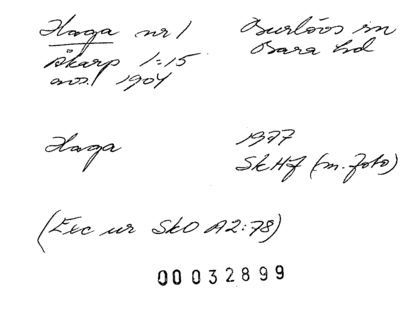 Haga nr 1 Burlövs sn
Åkarp 1:15 Bara hd
avs. 1904
Haga 1977
SkHf (m. foto)
(Exc ur SkO A2:78)
00032899